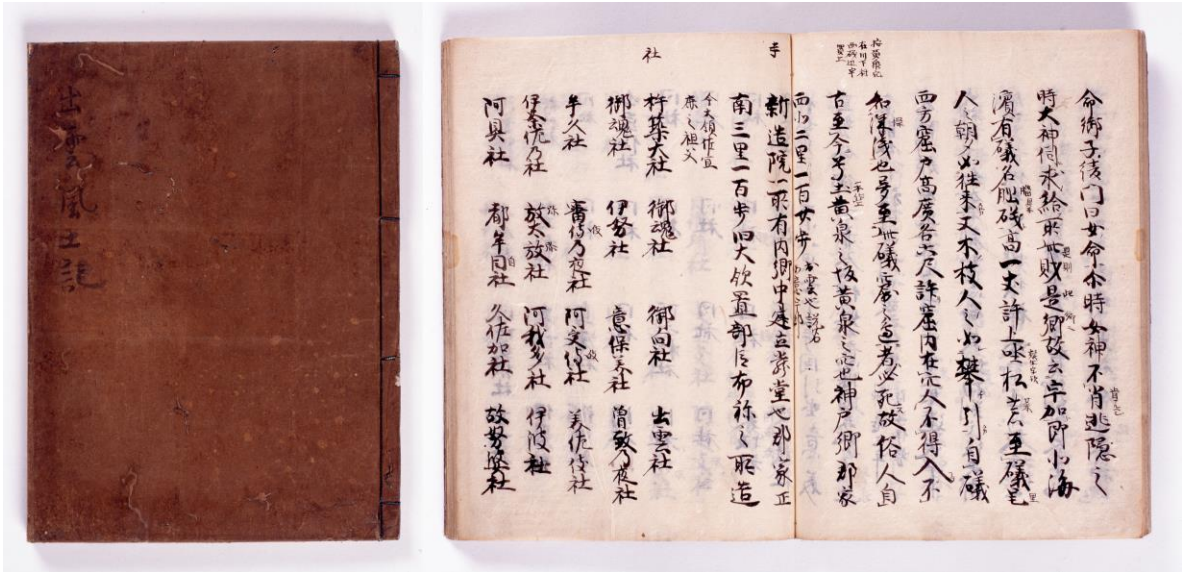 出雲風土記
命御子綾門日女命尒時女神不肯逃隠之
時大神伺求給所此則是郷故云宇加即北海
濱有礒名脳礒高一丈許上生松 至礒毛
人之朝夕如往来又木枝人之如攀引自礒
西方窟戸高廣各六尺許窟内在穴人不得入不
知深浅也夢至此礒窟之邊者必死故俗人自
古至今号土黄泉之坂黄泉之穴也神戸郷郡家
西北二里一百廿歩 出雲也説名 如意宇郡
新造院一所有内郷中建立厳堂也郡家正
南三里一百歩旧大領置部臣布祢之所造
今大領佐宜
麻之祖父
社
杵築大社 御魂社 御向社 出雲社
御魂社 伊努社 意保美社 曽致乃夜社
牟久社 審伎乃夜社 阿受伎社 美佐伎社
伊奈佐乃社 阿我多社 伊波社
阿具社 都牟自社 久佐加社 故努婆社